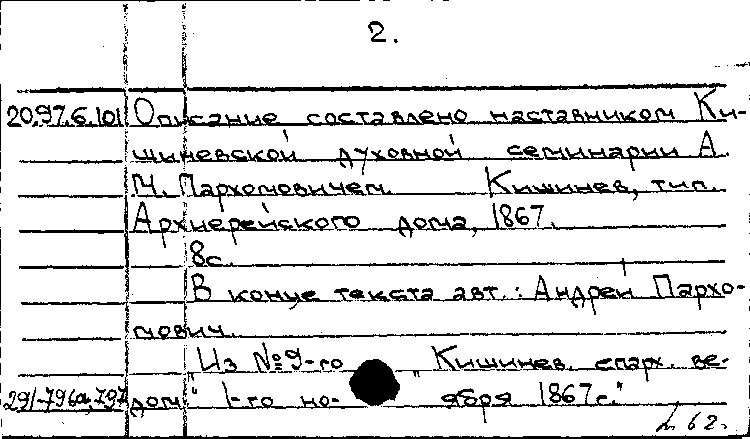 2.
20.97.6.101 Описание составлено наставником Ки-
шиневской духовной семинарии А.
М. Пархомовичем. Кишинев, тип.
Архиерейского дома, 1867.
8с.
В конце текста авт.: Андрей Пархо-
мович.
"Из №9-го "Кишинев. епарх. ве-
291-796а,797 дом." 1-го но- ября 1867г."
62.